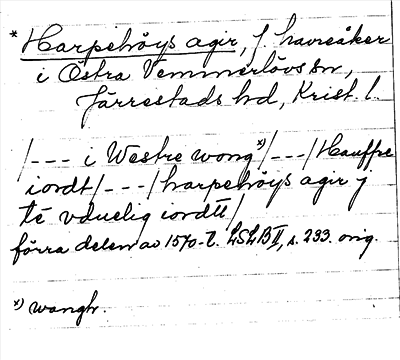 * Harpehöys agir, f. havreåker
i Östra Vemmerlövs sn,
Järrestads hd, Krist. l.
/--- i Westre wong x)/---/Hauffre
iordt/---/harpehöys agir j
té vduelig iordtt/
förra delen av 1570-t. LSLB II, s. 233. orig.
x) wangh.